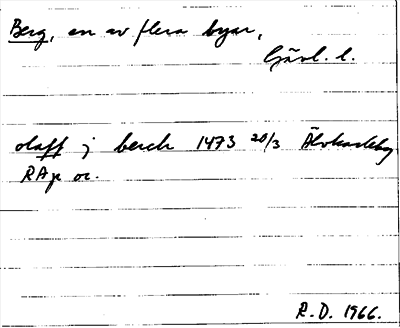 Berg, en av flera byar,
Gävl. l.
olaff j berch 1473 20/3 Älvkarleby
RAp or.
R.D. 1966.